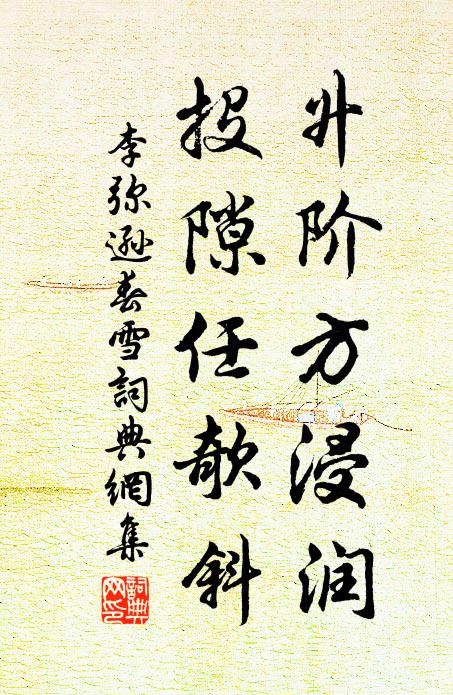 升阶方浸润
投隙任欹斜
李弥逊春雪詞典網集
詞典
网印